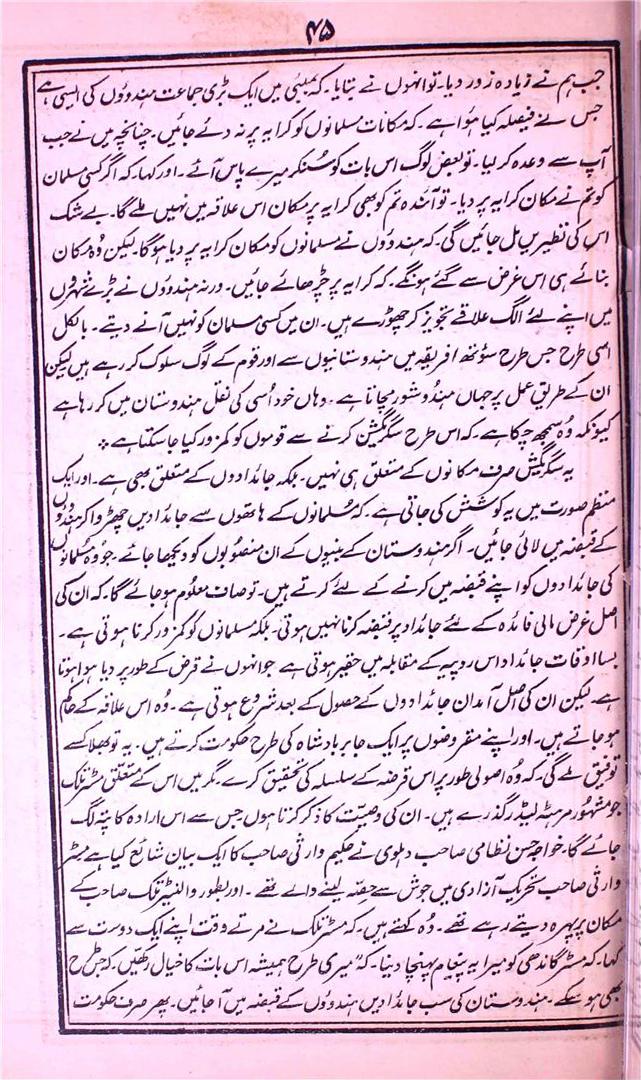 ۴۵
جب ہم نے زیادہ زور دیا۔ تو انہوں نے بتایا۔ کہ بمبئی میں ایک بڑی جماعت ہندوؤں کی ایسی ہے
جس نے فیصلہ کیا ہوا ہے۔ کہ مکانات مسلمانوں کو کرایہ پر نہ دئے جائیں۔ چنانچہ میں نے جب
آپ سے وعدہ کر لیا۔ تو بعض لوگ اس بات کو سُنکر میرے پاس آئے۔ اور کہا۔ کہ اگر کسی مسلمان
کو تم نے مکان کرایہ پر دیا۔ تو آئندہ تم کو بھی کرایہ پر مکان اس علاقہ میں نہیں ملے گا۔ بے شک
اس کی نظیریں مل جائیں گی۔ کہ ہندوؤں نے مسلمانوں کو مکان کرایہ پر دیا ہو گا۔ لیکن وُہ مکان
بنائے ہی اس غرض سے گئے ہونگے۔ کہ کرایہ پر چڑھائے جائیں۔ ورنہ ہندوؤں نے بڑے شہروں
میں اپنے لئے الگ علاقے تجویز کر چھوڑے ہیں۔ ان میں کسی مسلمان کو نہیں آنے دیتے۔ بالکل
اسی طرح جس طرح سؤتھ افریقہ میں ہندوستانیوں سے اور قوم کے لوگ سلوک کر رہے ہیں لیکن
ان کے طریق عمل پر جہاں ہندو شور مچاتا ہے۔ وہاں خود اُسی کی نقل ہندوستان میں کر رہا ہے
کیونکہ وُہ سمجھ چکا ہے۔ کہ اس طرح سگریگیشن کرنے سے قوموں کو کمزور کیا جا سکتا ہے ؞
یہ سگریگیشن صرف مکانوں کے متعلق ہی نہیں۔ بلکہ جائدادوں کے متعلق بھی ہے۔ اور ایک
منظم صورت میں یہ کوشش کی جاتی ہے۔ کہ مُسلمانوں کے ہاتھوں سے جائدادیں چھڑوا کر ہندوؤں
کے قبضہ میں لائی جائیں۔ اگر ہندوستان کے بنیوں کے ان منصوبوں کو دیکھا جائے۔ جو وُہ مُسلمانوں
کی جائدادوں کو اپنے قبضہ میں کرنے کے لئے کرتے ہیں۔ تو صاف معلُوم ہو جائے گا۔ کہ ان کی
اصل غرض مالی فائدہ کے لئے جائداد پر قبضہ کرنا نہیں ہوتی۔ بلکہ مسلمانوں کو کمزور کرنا ہوتی ہے۔
بسا اوقات جائداد اس روپیہ کے مقابلہ میں حقیر ہوتی ہے جو انہوں نے قرض کے طور پر دیا ہوا ہوتا
ہے۔ لیکن ان کی اصل آمدن جائدادوں کے حصول کے بعد شروع ہوتی ہے۔ وُہ اس علاقہ کے حاکم
ہو جاتے ہیں۔ اور اپنے مقروضوں پر ایک جابر بادشاہ کی طرح حکومت کرتے ہیں۔ یہ تو بھلا کسے
توفیق ملے گی۔ کہ وُہ اصولی طور پر اس قرضہ کے سلسلہ کی تحقیق کرے۔ مگر میں اس کے متعلق مسٹر تلک
جو مشہور مرہٹہ لیڈر گذرے ہیں۔ ان کی وصیّت کا ذکر کرتا ہوں جس سے اس ارادہ کا پتہ لگ
جائے گا۔ خواجہ حسن نظامی صاحب دہلوی نے حکیم وارثی صاحب کا ایک بیان شائع کیا ہے مسٹر
وارثی صاحب تحریک آزادی میں جوش سے حصّہ لینے والے تھے۔ اور بطور والنٹیر تلک صاحب کے
مکان پر پہرہ دیتے رہے تھے۔ وُہ کہتے ہیں۔ کہ مسٹر تلک نے مرتے وقت اپنے ایک دوست سے
کہا۔ کہ مسٹر گاندھی کو میرا یہ پیغام پہنچا دینا۔ کہ "میری طرح ہمیشہ اس بات کا خیال رکھیں۔ کہ جس طرح
بھی ہو سکے۔ ہندوستان کی سب جائدادیں ہندوؤں کے قبضہ میں آ جائیں۔ پھر صرف حکومت